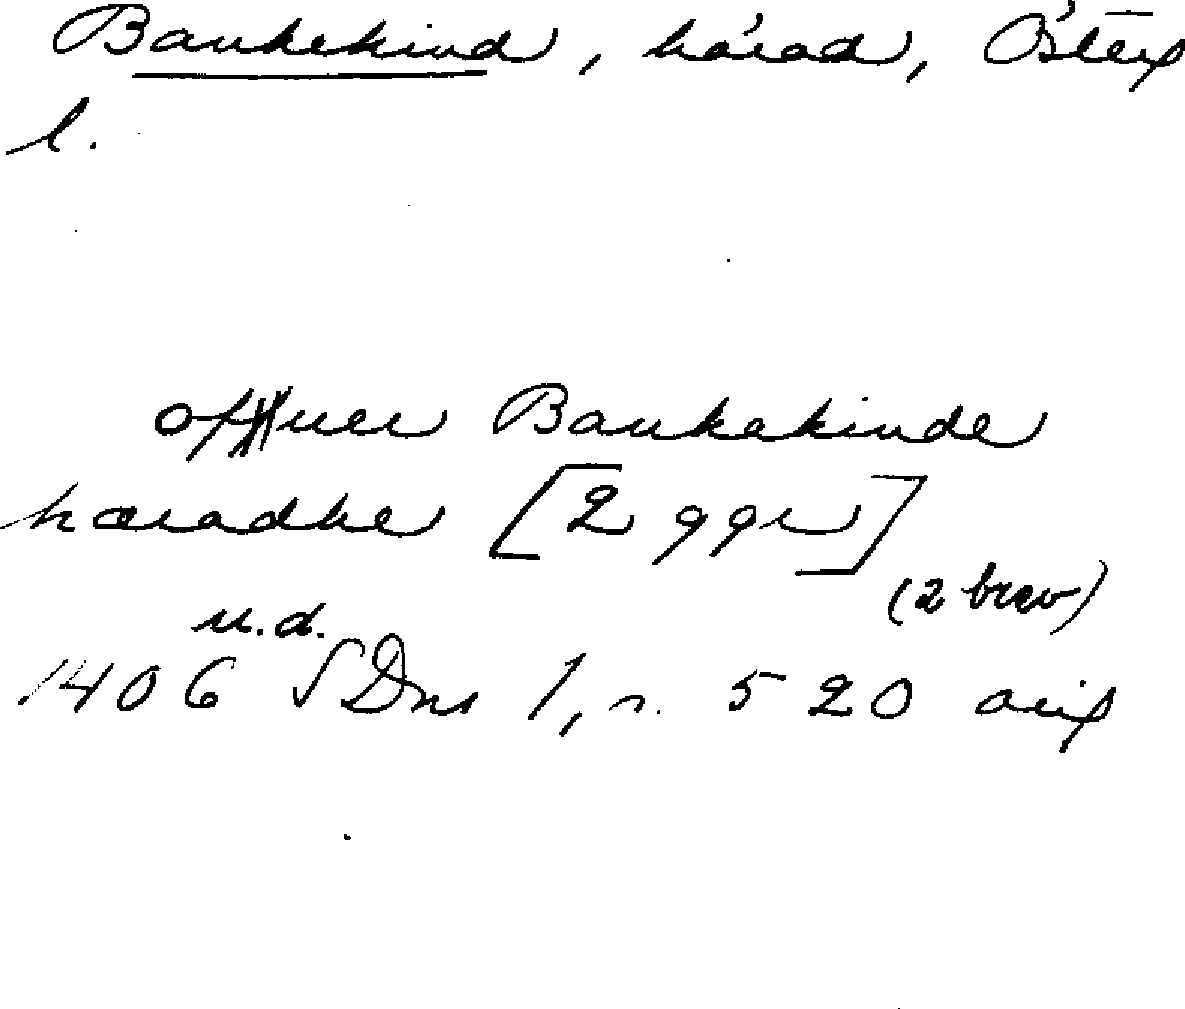 Bankekind, härad, Österg
l.
offuer Bankakinde
hæradhe [2 ggr]
(2 brev)
u.d.
1406 SDns 1, n. 520 orig